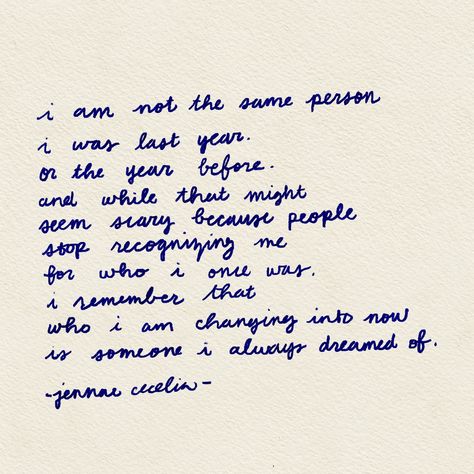 i am not the same person
i was last year.
or the year before.
and while that might
seem scary because people
stop recognizing me
for who i once was.
i remember that
who i am changing into now
is someone i always dreamed of.
-jennae cecelia-